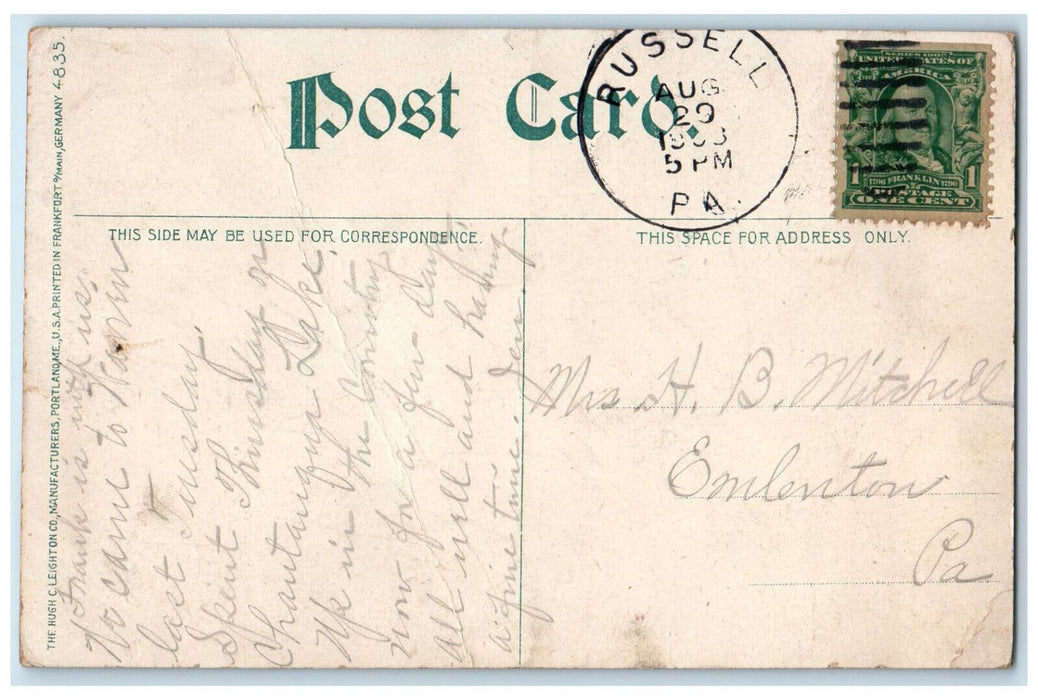 Post Card.
RUSSELL
AUG.
29
1908
5 PM
PA.
SERIES 1902
UNITED STATES OF
AMERICA
1706 FRANKLIN 1790
1 1
POSTAGE
ONE CENT
THIS SIDE MAY BE USED FOR CORRESPONDENCE.
THIS SPACE FOR ADDRESS ONLY.
THE HUGH C. LEIGHTON CO., MANUFACTURERS, PORTLAND, ME., U.S.A. PRINTED IN FRANKFORT o/MAIN, GERMANY 4835.
Frank is with us.
We came to Warren
last Tuesday.
Spent Thursday on
Chautauqua Lake.
Up in the Country
now for a few days
all well and having
a fine time.
Mrs H. B. Mitchell
Emlenton
Pa